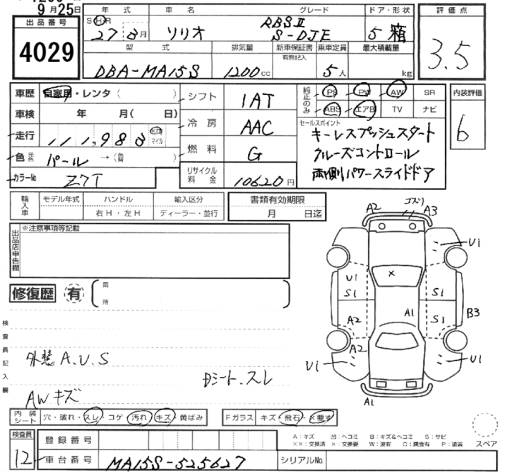 9月25日
出品番号
4029
年式 車名 グレード ドア・形状
S H R
27年8月 ソリオ RBSⅡ S-DJE 5 箱
型式 排気量 新車保証書 乗車定員 最大積載量
有側記入
DBA-MA15S 1200cc 5人 kg
評価点
3.5
車歴 自家用・レンタ( )
車検 年 月( 日)
走行 111,983 km マイル
色 元色 パール → (替 )
カラーNo Z7T
シフト 1AT
冷房 AAC
燃料 G
リサイクル料金 10620円
純正のみ PS PW AW SR
ABS エアB TV ナビ
内装評価
6
セールスポイント
キーレスプッシュスタート
クルーズコントロール
両側パワースライドドア
輸入車 モデル年式 ハンドル 輸入区分
右H・左H ディーラー・並行
書類有効期限
月 日迄
出品店申告欄
※注意事項等記載
修復歴 有
箇所
検査員記入欄
外装 A.U.S
Dシート.スレ
AWキズ
コスリ
A2 A3
U1 U1
U1 S1 S1
A2 A1 B3
A2 A2
U1 U1
A1
内装シート 穴・破れ・スレ コゲ 汚れ キズ 黄ばみ
Fガラス キズ・飛石
スペア
A:キズ B:キズ&ヘコミ S:サビ
W:補修波 C:腐食有 P:塗装
検査員
12
登録番号
車台番号 MA15S-525627
シリアルNo